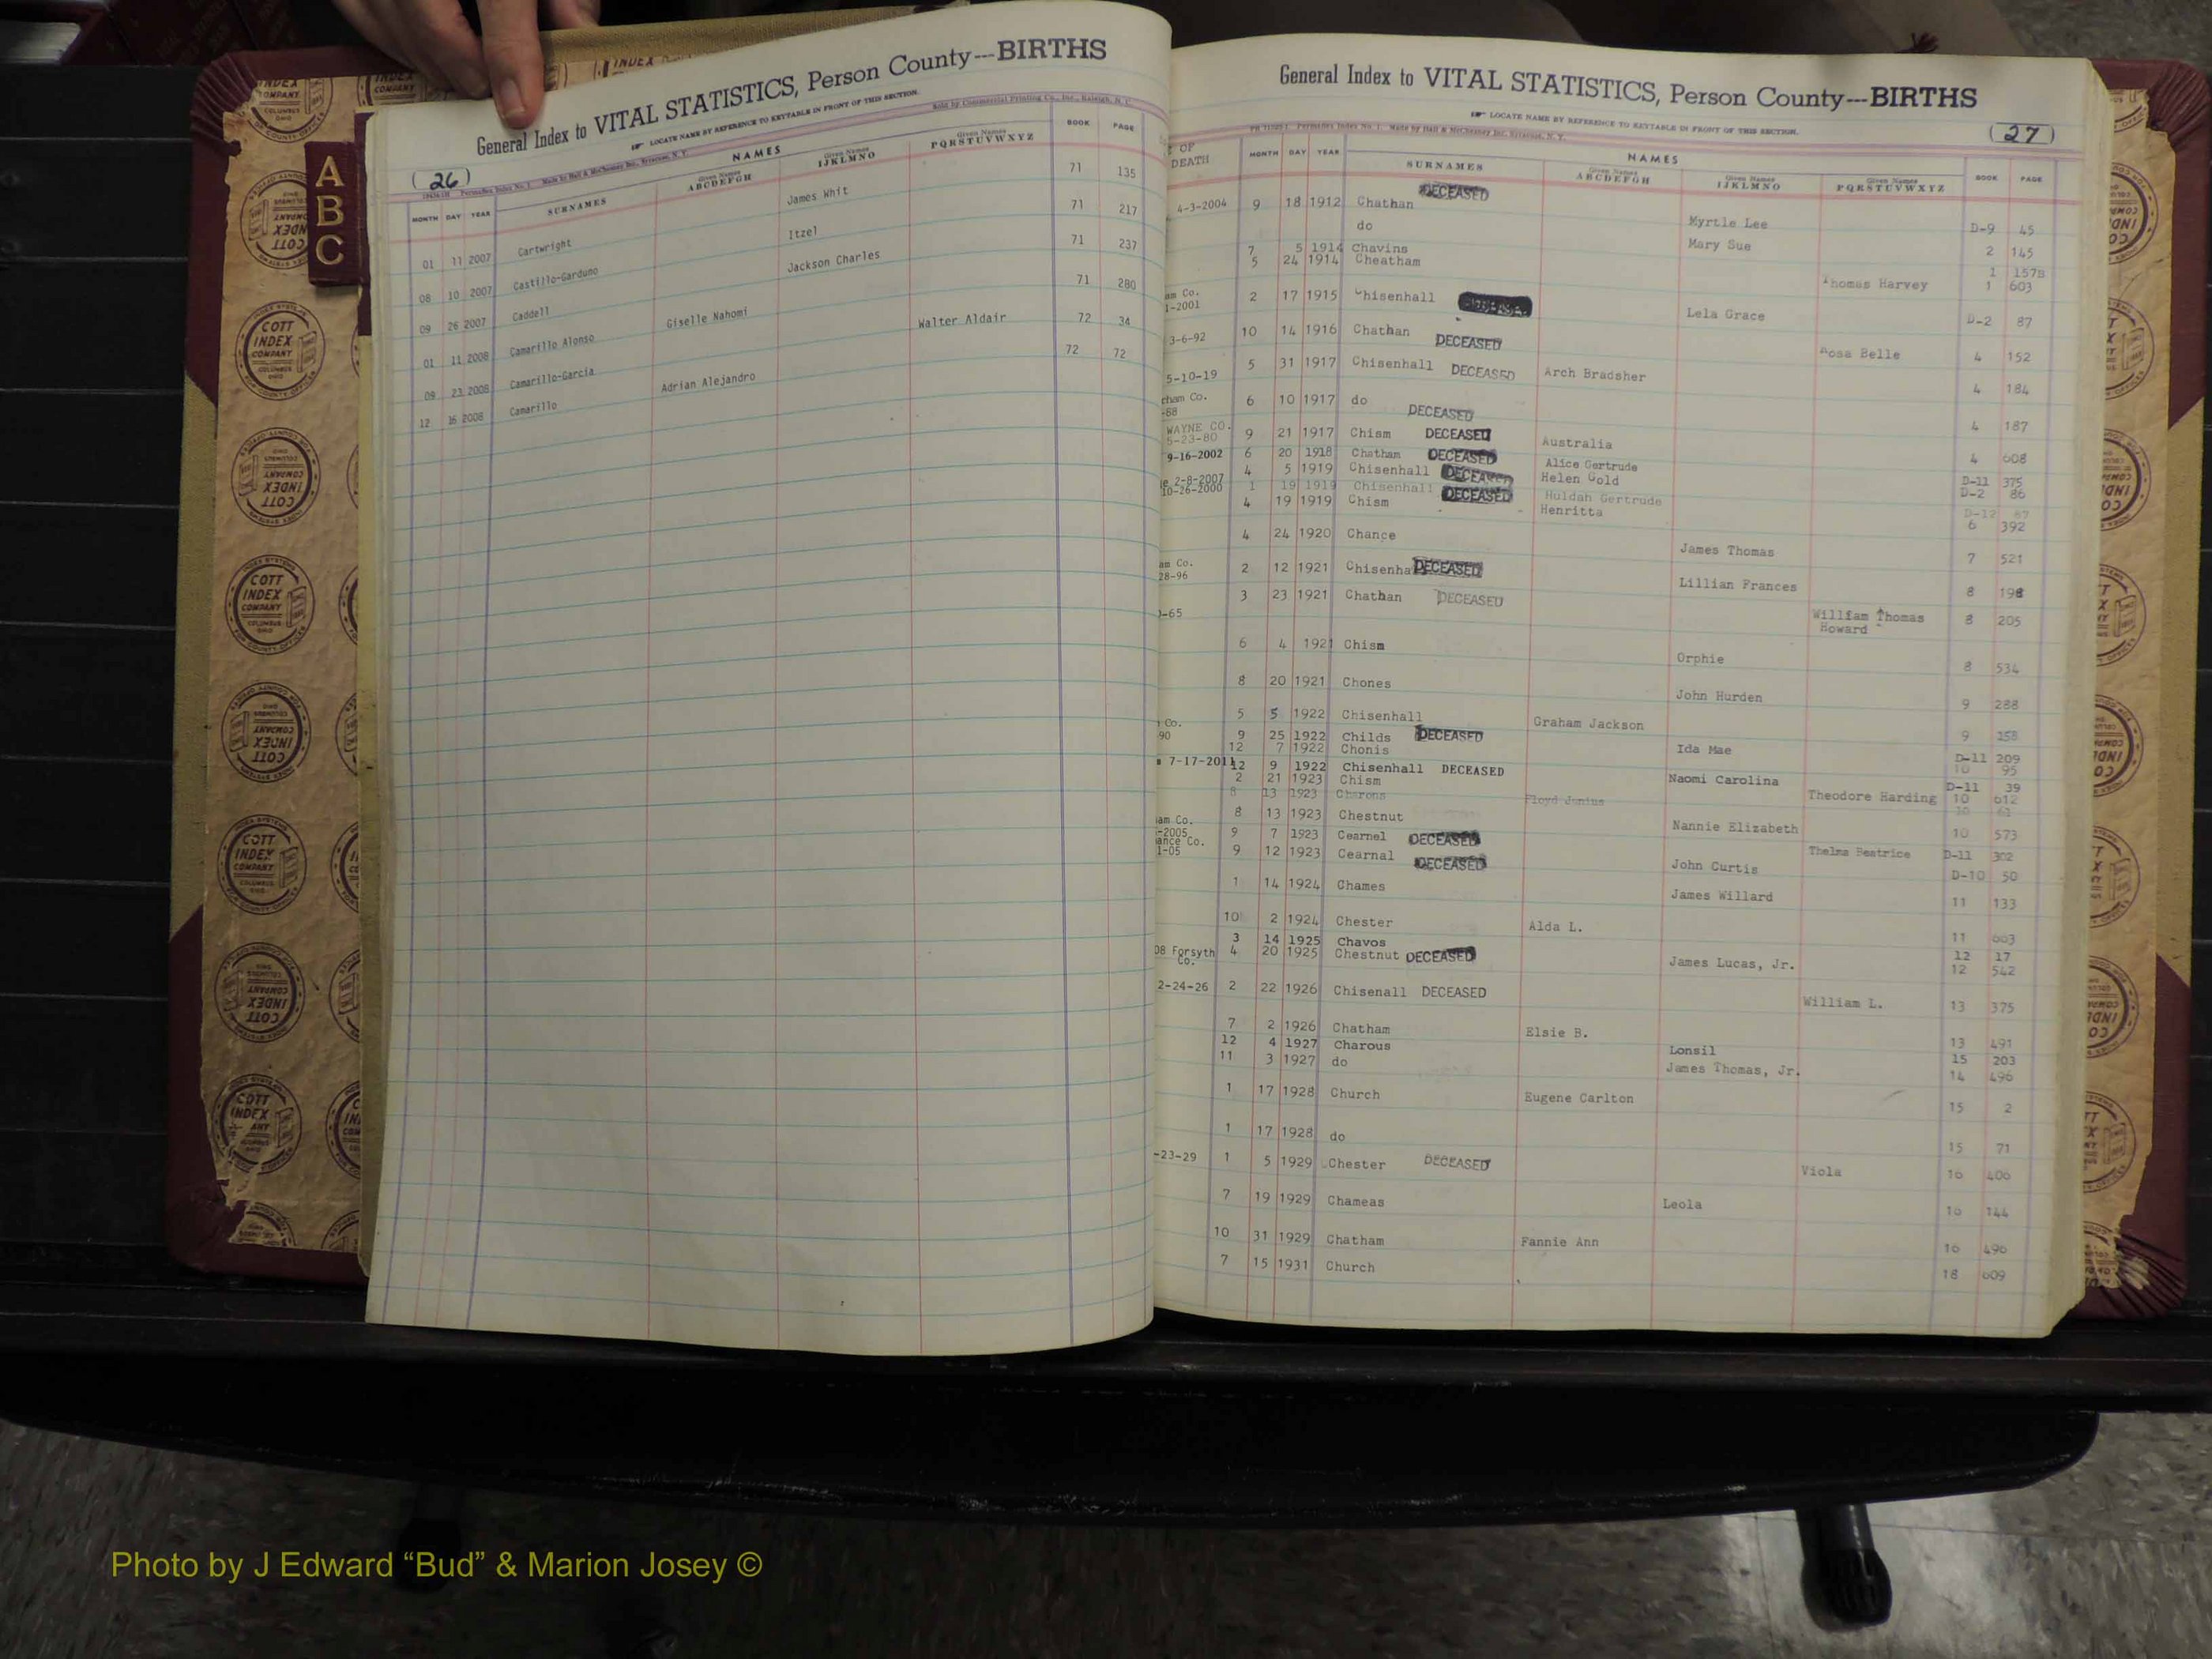 General Index to VITAL STATISTICS, Person County---BIRTHS
LOCATE NAME BY REFERENCE TO KEYTABLE IN FRONT OF THIS SECTION.
Sold by Commercial Printing Co., Inc., Raleigh, N. C.
(26)
NAMES
MONTH DAY YEAR SURNAMES Given Names ABCDEFGH Given Names IJKLMNO Given Names PQRSTUVWXYZ BOOK PAGE
01 11 2007 Cartwright James Whit 71 135
08 10 2007 Castillo-Garduno Itzel 71 217
09 26 2007 Caddell Jackson Charles 71 237
01 11 2008 Camarillo Alonso Giselle Nahomi 71 280
09 23 2008 Camarillo-Garcia Walter Aldair 72 34
12 16 2008 Camarillo Adrian Alejandro 72 72
A
B
C
COTT
INDEX
COMPANY
COLUMBUS
OHIO
General Index to VITAL STATISTICS, Person County---BIRTHS
LOCATE NAME BY REFERENCE TO KEYTABLE IN FRONT OF THIS SECTION.
(27)
OF
DEATH
NAMES
MONTH DAY YEAR SURNAMES Given Names ABCDEFGH Given Names IJKLMNO Given Names PQRSTUVWXYZ BOOK PAGE
4-3-2004 9 18 1912 Chathan DECEASED Myrtle Lee D-9 45
do Mary Sue 2 145
7 5 1914 Chavins 1 157B
5 24 1914 Cheatham Thomas Harvey 1 603
am Co.
1-2001 2 17 1915 Chisenhall Lela Grace D-2 87
3-6-92 10 14 1916 Chathan DECEASED Rosa Belle 4 152
5-10-19 5 31 1917 Chisenhall DECEASED Arch Bradsher 4 184
cham Co.
-88 6 10 1917 do DECEASED 4 187
WAYNE CO.
5-23-80 9 21 1917 Chism DECEASED Australia 4 608
9-16-2002 6 20 1918 Chatham DECEASED Alice Gertrude D-11 375
2-8-2007 4 5 1919 Chisenhall DECEASED Helen Gold D-2 86
10-26-2000 1 19 1919 Chisenhall DECEASED Huldah Gertrude D-12 67
4 19 1919 Chism Henritta 6 392
4 24 1920 Chance James Thomas 7 521
am Co.
28-96 2 12 1921 Chisenha DECEASED Lillian Frances 8 198
-65 3 23 1921 Chathan DECEASED William Thomas 8 205
Howard
6 4 1921 Chism Orphie 8 534
8 20 1921 Chones John Hurden 9 288
5 5 1922 Chisenhall Graham Jackson 9 258
Co.
90 9 25 1922 Childs DECEASED Ida Mae D-11 209
12 7 1922 Chonis 10 95
7-17-2011 12 9 1922 Chisenhall DECEASED Naomi Carolina D-11 39
2 21 1923 Chism Theodore Harding 10 612
8 13 1923 Charons Floyd Junius
8 13 1923 Chestnut Nannie Elizabeth 10 573
am Co.
-2005 9 7 1923 Cearnel DECEASED Thelma Beatrice D-11 302
ance Co.
1-05 9 12 1923 Cearnal DECEASED John Curtis D-10 50
1 14 1924 Chames James Willard 11 133
10 2 1924 Chester Alda L. 11 603
3 14 1925 Chavos 12 17
08 Forsyth Co. 4 20 1925 Chestnut DECEASED James Lucas, Jr. 12 542
2-24-26 2 22 1926 Chisenall DECEASED William L. 13 375
7 2 1926 Chatham Elsie B. 13 491
12 4 1927 Charous Lonsil 15 203
11 3 1927 do James Thomas, Jr. 14 496
1 17 1928 Church Eugene Carlton 15 2
1 17 1928 do 15 71
-23-29 1 5 1929 Chester DECEASED Viola 16 406
7 19 1929 Chameas Leola 16 144
10 31 1929 Chatham Fannie Ann 16 496
7 15 1931 Church 18 609
Photo by J Edward “Bud” & Marion Josey ©